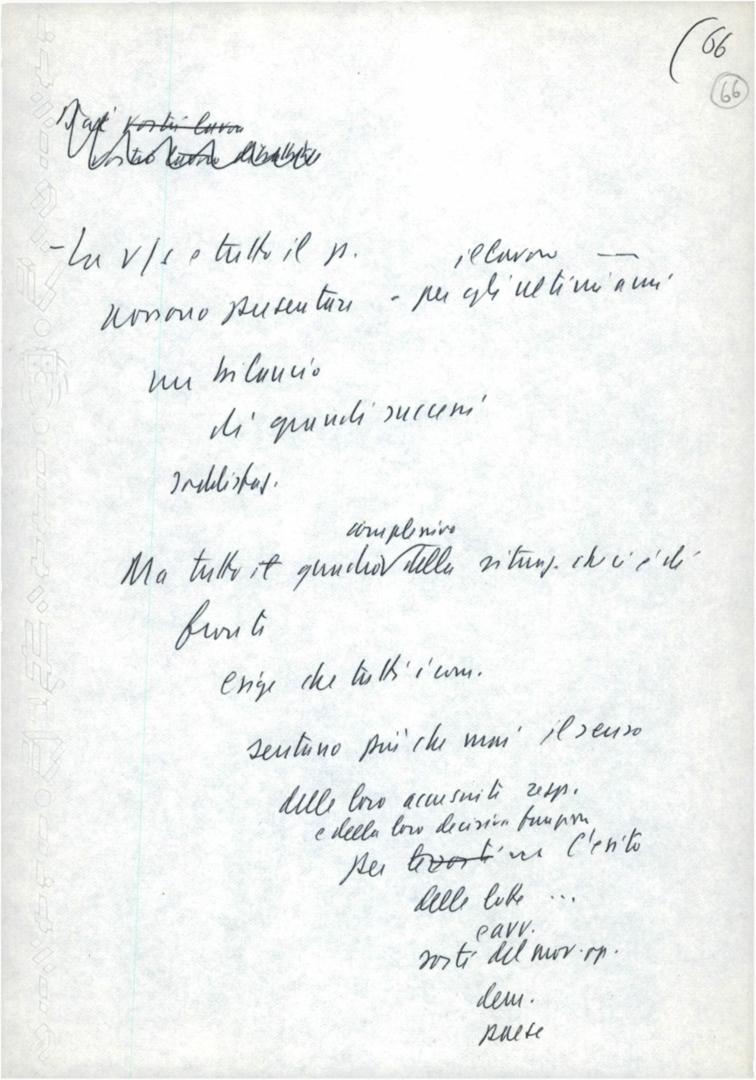 (66
66
vostri lavori
- La v/s e tutto il p. il lavoro —
possono presentare - per gli ultimi anni
un bilancio
di grandi successi
soddisfaz.
complessivo
Ma tutto il quadro della situaz. che ci è di
fronte
esige che tutti i com.
sentano più che mai il senso
delle loro accresciute resp.
e della loro decisiva funzione
per l'esito
delle lotte ...
e avv.
sorti del mov. op.
dem.
paese